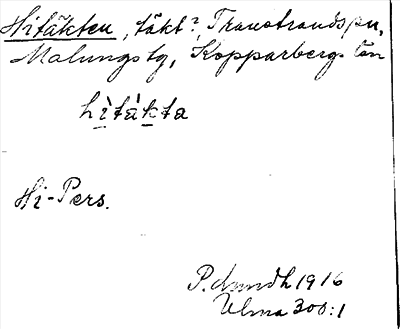 Hitäkten, täkt?, Transtrands sn,
Malungs tg, Kopparbergs län
hìtä̀kta
Hi-Pers.
1916
Ulma 300:1